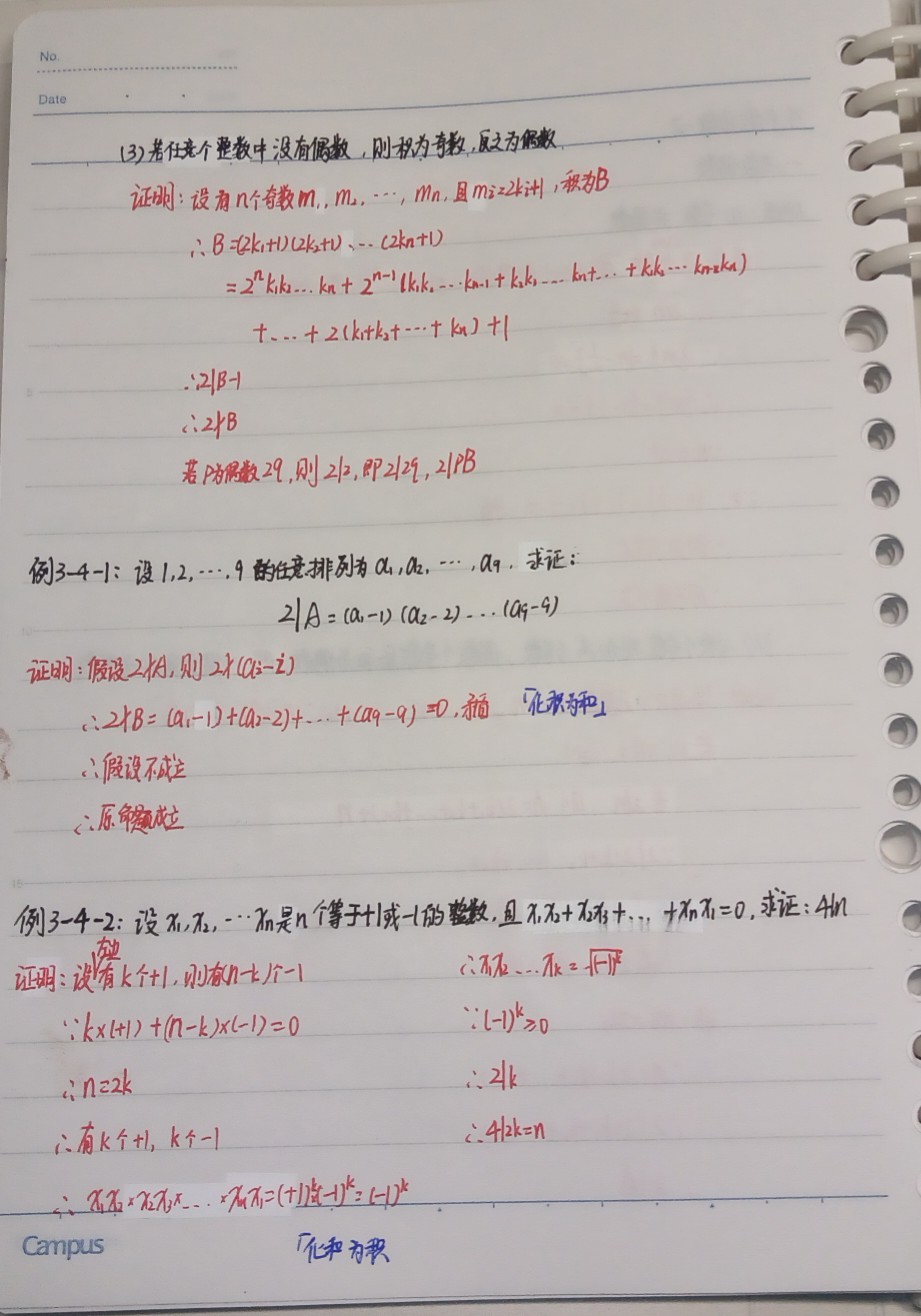 No.
Date
(3)若任意个整数中没有偶数,则积为奇数,反之为偶数
证明:设有n个奇数m₁, m₂, …, mn,且mi=2ki+1,积为B
∴B=(2k₁+1)(2k₂+1)、…(2kn+1)
=2ⁿk₁k₂…kn + 2ⁿ⁻¹(k₁k₂…kn-1+k₂k₃…kn+…+k₁k₂…kn-2kn)
+…+2(k₁+k₂+…+kn)+1
∴2|B-1
∴2∤B
若P为偶数2q,则2|2,即2|2q,2|PB
例3-4-1:设1,2,…,9的任意排列为a₁,a₂,…,a₉. 求证:
2|A=(a₁-1)(a₂-2)…(a₉-9)
证明:假设2∤A,则2∤(ai-i)
∴2∤B=(a₁-1)+(a₂-2)+…+(a₉-9)=0,矛盾 「化积为和」
∴假设不成立
∴原命题成立
例3-4-2:设x₁,x₂,…xn是n个等于+1或-1的整数,且x₁x₂+x₂x₃+…+xnx₁=0,求证:4|n
左边
证明:设有k个+1,则有(n-k)个-1
∵k×(+1)+(n-k)×(-1)=0
∴n=2k
∴有k个+1, k个-1
∴x₁x₂×x₂x₃×…×xnx₁=(+1)ᵏ(-1)ᵏ=(-1)ᵏ
∴x₁x₂…xk=√(-1)ᵏ
∵(-1)ᵏ≥0
∴2|k
∴4|2k=n
Campus
「化和为积